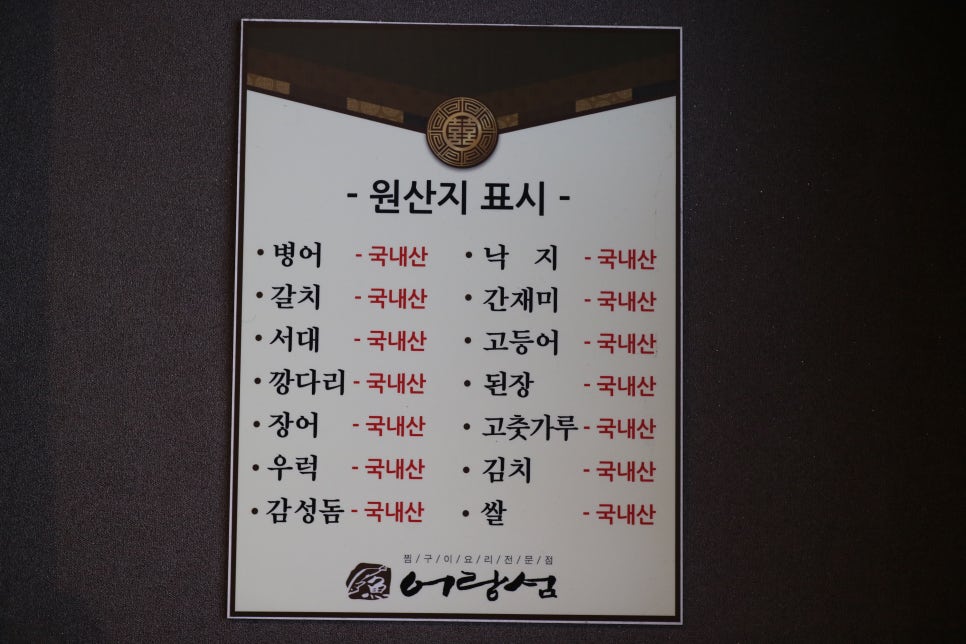 - 원산지 표시 -
• 병어 - 국내산 • 낙 지 - 국내산
• 갈치 - 국내산 • 간재미 - 국내산
• 서대 - 국내산 • 고등어 - 국내산
• 깡다리 - 국내산 • 된장 - 국내산
• 장어 - 국내산 • 고춧가루 - 국내산
• 우럭 - 국내산 • 김치 - 국내산
• 감성돔 - 국내산 • 쌀 - 국내산
찜/구/이/요/리/전/문/점
魚 어랑섬